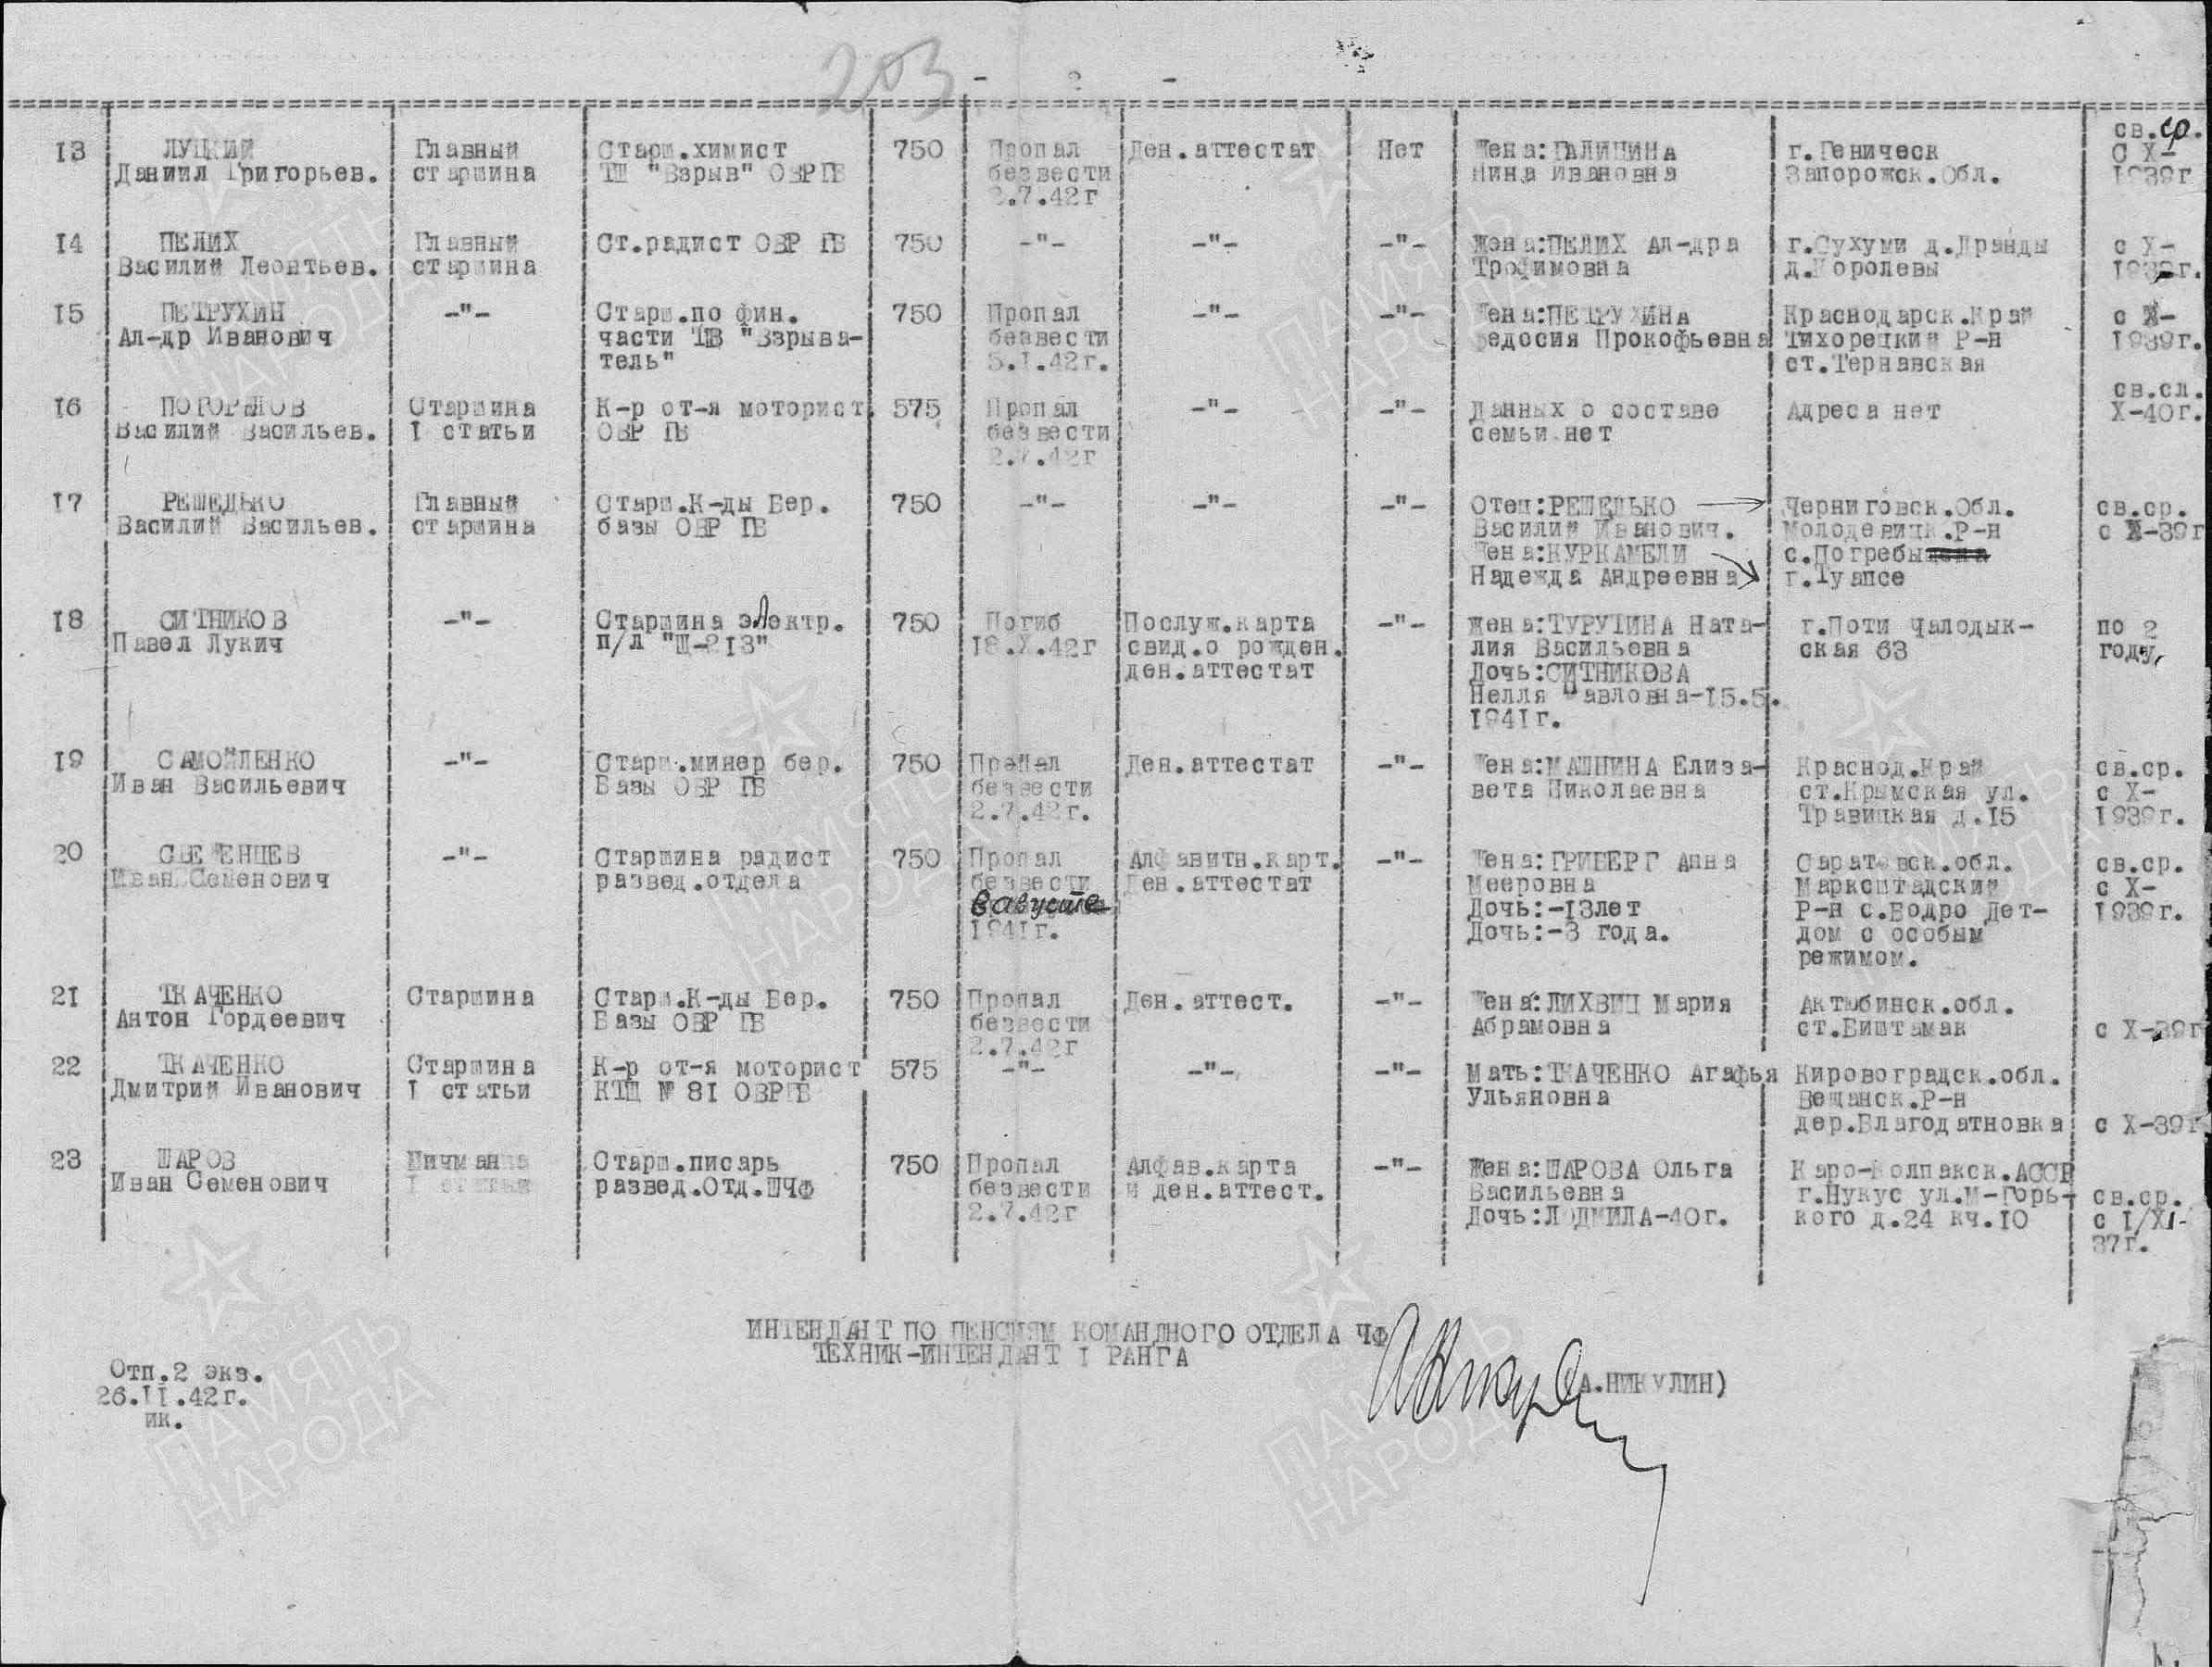 203
- 2 -
13 ЛУЦКИЙ Даниил Григорьев. Главный старшина Старш.химист ТЩ "Взрыв" ОВР ГБ 750 Пропал безвести 2.7.42г Ден.аттестат Нет Жена:ГАЛИЦИНА Нина Ивановна г.Геническ Запорожск.Обл. св.ср. С X-1939г
14 ПЕЛИХ Василий Леонтьев. Главный старшина Ст.радист ОВР ГБ 750 -"- -"- -"- Жена:ПЕЛИХ Ал-дра Трофимовна г.Сухуми д.Дранды д.Королевы с X-1939г.
15 ПЕТРУХИН Ал-др Иванович -"- Старш.по фин. части ТЩ "Взрыватель" 750 Пропал безвести 5.I.42г. -"- -"- Жена:ПЕТРУХИНА Федосия Прокофьевна Краснодарск.Край Тихорецкий Р-н ст.Тернавская с X-1939г.
16 ПОГОРЕЛОВ Василий Васильев. Старшина I статьи К-р от-я моторист. ОВР ГБ 575 Пропал безвести 2.7.42г -"- -"- Данных о составе семьи нет Адреса нет св.сл. X-40г.
17 РЕШЕДЬКО Василий Васильев. Главный старшина Старш.К-ды Бер. базы ОВР ГБ 750 -"- -"- -"- Отец:РЕШЕДЬКО Василий Иванович. Жена:КУРКАМЕЛИ Надежда Андреевна Черниговск.Обл. Молодевицк.Р-н с.Погребы г.Туапсе св.ср. с X-39г
18 СИТНИКОВ Павел Лукич -"- Старшина электр. п/л "Щ-213" 750 Погиб 18.X.42г Послуж.карта свид.о рожден. ден.аттестат -"- Жена:ТУРУТИНА Наталия Васильевна Дочь:СИТНИКОВА Нелля Павловна-15.5.1941г. г.Поти Чалодыкская 63 по 2 году
19 САМОЙЛЕНКО Иван Васильевич -"- Старш.минер бер. Базы ОВР ГБ 750 Пропал безвести 2.7.42г. Ден.аттестат -"- Жена:МАШНИНА Елизавета Николаевна Краснод.Край ст.Крымская ул. Травицкая д.15 св.ср. с X-1939г.
20 СВЕЧЕНЦЕВ Иван Семенович -"- Старшина радист развед.отдела 750 Пропал безвести в августе 1941г. Алфавитн.карт. Ден.аттестат -"- Жена:ГРИБЕРГ Анна Мееровна Дочь:-13лет Дочь:-3 года. Саратовск.обл. Марксштадский Р-н с.Бодро Дет-дом с особым режимом. св.ср. с X-1939г.
21 ТКАЧЕНКО Антон Гордеевич Старшина Старш.К-ды Бер. Базы ОВР ГБ 750 Пропал безвести 2.7.42г Ден.аттест. -"- Жена:ЛИХВИЦ Мария Абрамовна Актюбинск.обл. ст.Биштамак с X-39г
22 ТКАЧЕНКО Дмитрий Иванович Старшина I статьи К-р от-я моторист КТЩ № 81 ОВРГБ 575 -"- -"- -"- Мать:ТКАЧЕНКО Агафья Ульяновна Кировоградск.обл. Вещанск.Р-н дер.Благодатновка с X-39г
23 ШАРОВ Иван Семенович Мичман Старш.писарь развед.Отд.ШЧФ 750 Пропал безвести 2.7.42г Алфав.карта и ден.аттест. -"- Жена:ШАРОВА Ольга Васильевна Дочь:ЛЮДМИЛА-40г. Каро-Колпакск.АССР г.Нукус ул.М-Горького д.24 кч.10 св.ср. с I/XI-37г.
ИНТЕНДАНТ ПО ПЕНСИЯМ КОМАНДНОГО ОТДЕЛА ЧФ
ТЕХНИК-ИНТЕНДАНТ I РАНГА
(А.НИКУЛИН)
Отп.2 экз.
26.II.42г.
ик.
ПАМЯТЬ НАРОДА